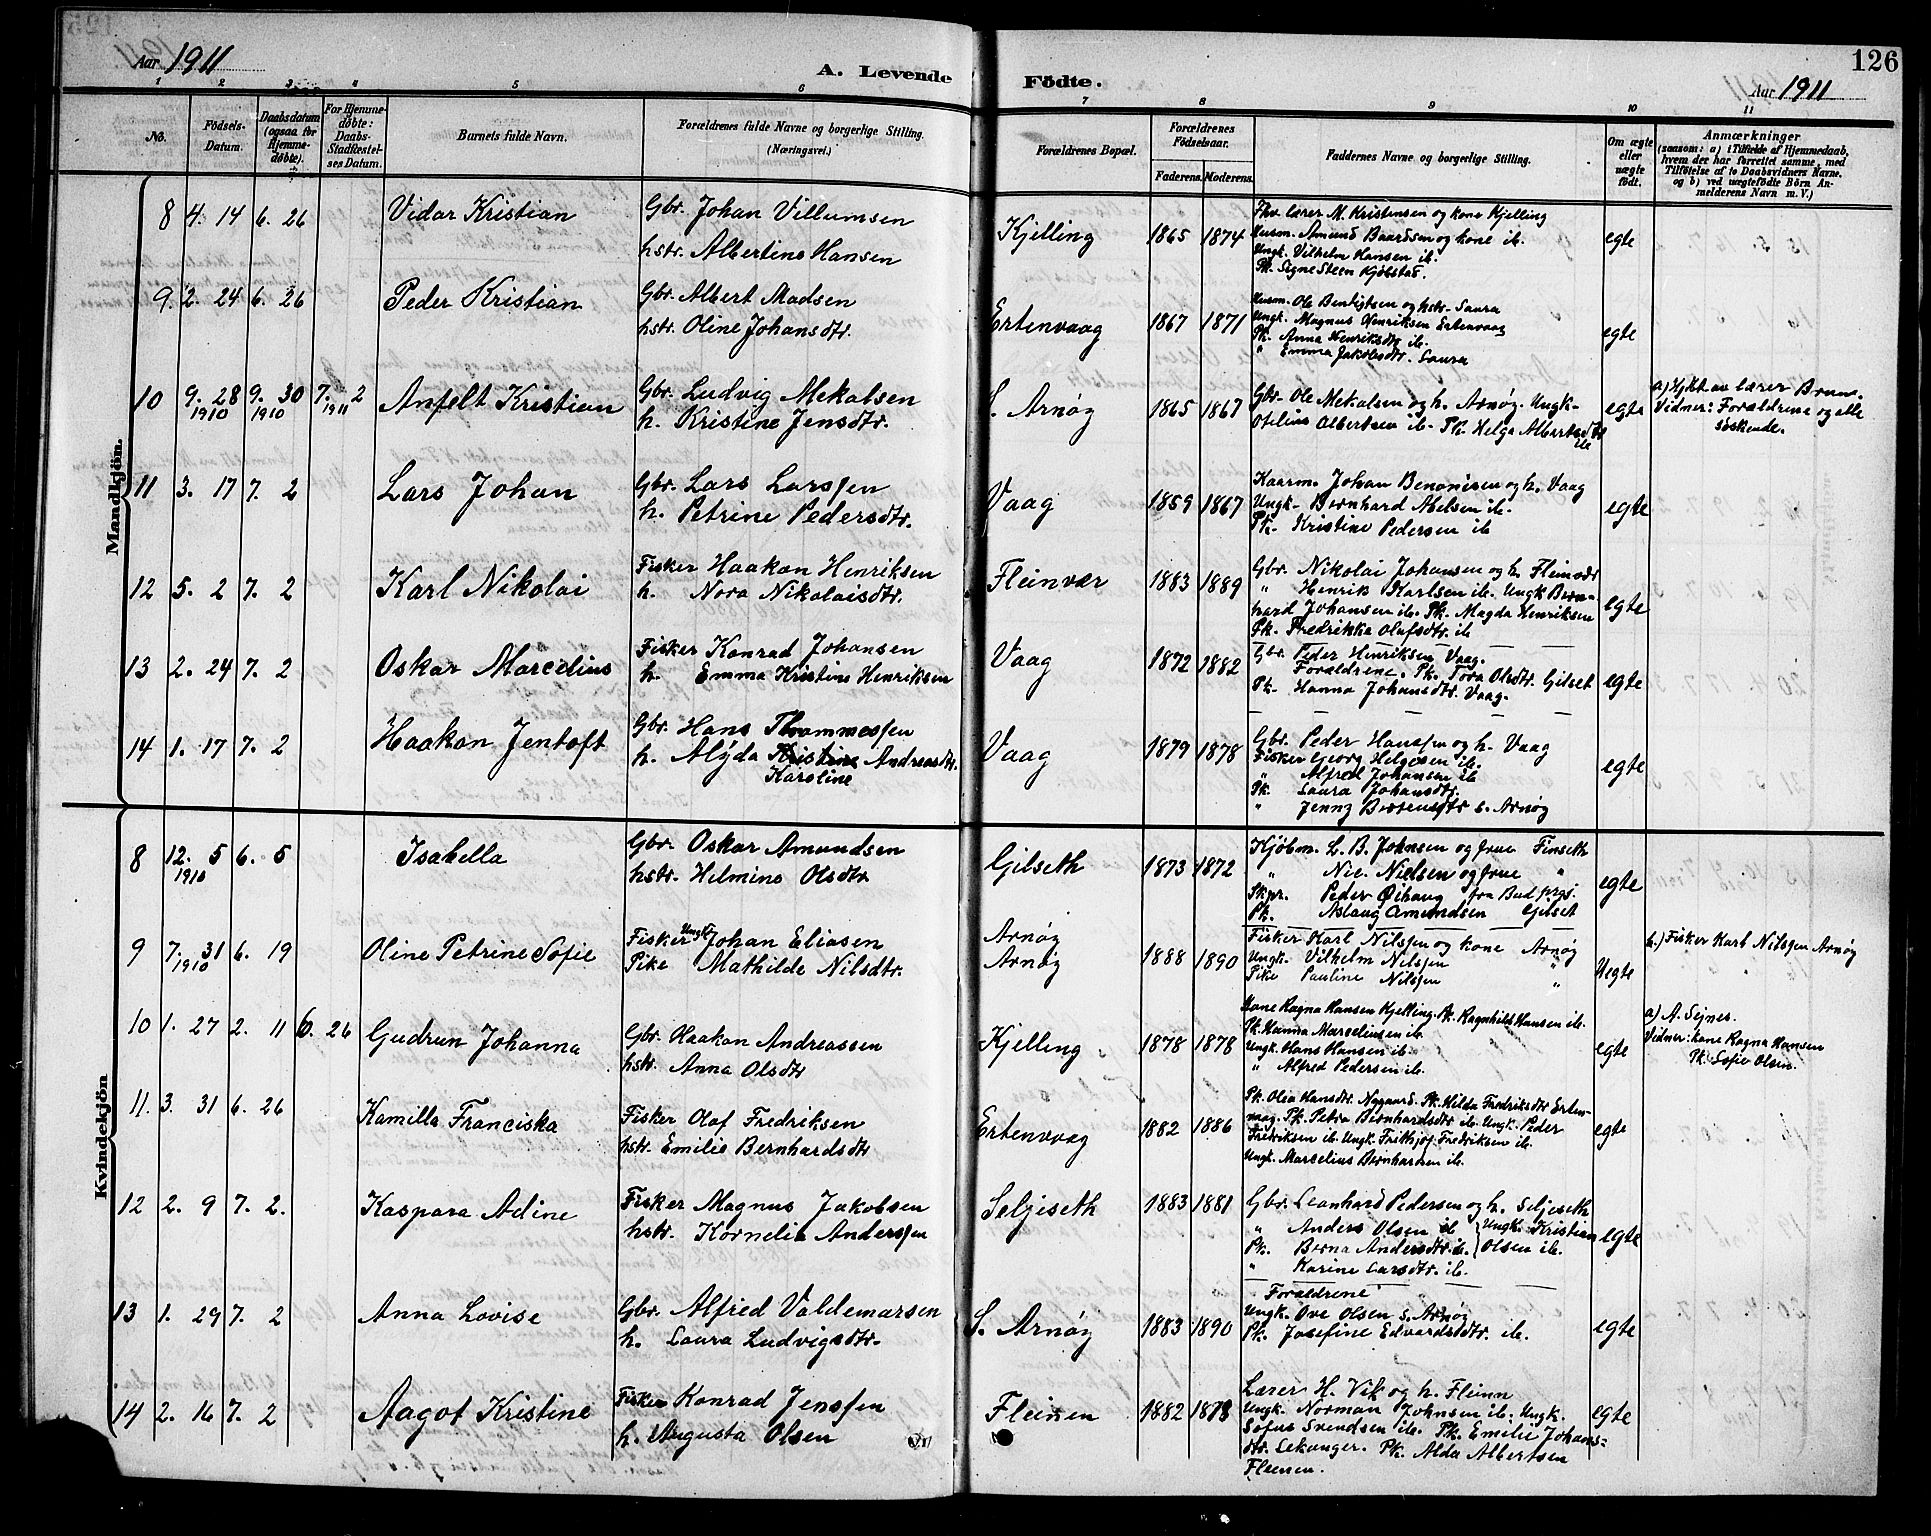 126
Aar 1911
A. Levende Födte.
Aar 1911
1 2 3 4 5 6 7 8 9 10 11
No.
Födsels-Datum.
Daabsdatum (ogsaa for Hjemmedøbte).
For Hjemmedøbte: Daabs-Stadfæstelses Datum.
Barnets fulde Navn.
Forældrenes fulde Navne og borgerlige Stilling. (Næringsvei.)
Forældrenes Bopæl.
Forældrenes Födselsaar.
Faderens. Moderens.
Faddernes Navne og borgerlige Stilling.
Om ægte eller uægte født.
Anmærkninger
(saasom: a) i Tilfælde af Hjemmedaab, hvem der har forrettet samme, med Tilföielse af to Daabsvidners Navne, og b) ved uægtefödte Börn Anmelderens Navn m. V.)
Mandkjön.
8 4. 14 6. 26 Vidar Kristian
Gbr. Johan Villumsen
hstr. Albertine Hansen
Kjelling 1865 1874
Fhv. lærer M. Kristensen og kone Kjelling
Husm. Amund Baardsen og kone ib.
Ungk. Vilhelm Hansen ib.
Pk. Signe Steen Kjøbstad.
egte
9. 2. 24 6. 26 Peder Kristian
Gbr. Albert Madsen
hstr. Oline Johansdtr.
Ertenvaag 1867 1871
Husm. Ole Bentigtsen og hstr. Saura
Ungk. Magnus Henriksen Ertenvaag
Pk. Anna Henriksdtr ib.
" Emma Jakobsdtr. Saura
egte
10 9. 28 1910 9. 30 1910 7. 2 1911 Anfelt Kristian
Gbr. Ludvig Mekalsen
h. Kristine Jensdtr.
S. Arnøy 1865 1867
Gbr. Ole Mekalsen og h. Arnøy. Ungk.
Otelius Albertsen ib. Pk. Helga Albertsdtr
ib
egte
a) Hjdøbt av lærer Bruun.
Vidner: Forældrene og alle
søskende.
11 3. 17 7. 2 Lars Johan
Gbr. Lars Larssen
h. Petrine Pedersdtr.
Vaag 1859 1867
Kaarm. Johan Benonisen og h. Vaag
Ungk. Bernhard Abelsen ib.
Pk. Kristine Pedersen ib
egte
12 5. 2 7. 2 Karl Nikolai
Fisker Haakon Henriksen
h. Nora Nikolaisdtr.
Fleinvær 1883 1889
Gbr. Nikolai Johansen og h. Fleinvær
" Henrik Karlsen ib. Ungk Bern-
hard Johansen ib. Pk. Magda Henriksen
Pk. Fredrikka Olufsdtr. ib
egte
13 2. 24 7. 2 Oskar Marcelius
Fisker Konrad Johansen
h. Emma Kristine Henriksen
Vaag 1872 1882
Gbr. Peder Henriksen Vaag.
Forældrene. Pk. Tora Olsdtr. Gilset
Pk. Hanna Johansdtr. Vaag.
egte
14 1. 17 7. 2 Haakon Jentoft
Gbr. Hans Thommessen
h. Alyda Kristine Andreasdtr.
Karoline
Vaag 1879 1878
Gbr. Peder Hanssen og h. Vaag
Fisker Georg Helgesen ib.
" Alfred Johansen ib
Pk. Laura Johansdtr.
" Jenny Berensdtr S. Arnøy
egte
Kvindekjön
8 12. 5 1910 6. 5 Isabella
Gbr. Oskar Amundsen
hstr. Helmine Olsdtr
Gilseth 1873 1872
Kjøbm. L. B. Johnsen og frue Finseth
" Nic. Nielsen og frue "
Skpr. Peder Øihaug fra Bud prgj.
Pk. Aslaug Amundsen Gilset
egte
9 7. 31 1910 6. 19 Oline Petrine Sofie
Fisker Ungk. Johan Eliasen
Pike Mathilde Nilsdtr.
Arnøy
Arnøy
1888 1890
Fisker Karl Nilssen og kone Arnøy
Ungk. Vilhelm Nilssen "
Pike Pauline Nilssen "
Uegte
b.) Fisker Karl Nilssen Arnøy
10 1. 27 2. 11 6. 26 Gudrun Johanna
Gbr. Haakon Andreassen
hstr. Anna Olsdtr
Kjelling 1878 1878
Kone Ragna Hansen Kjelling. Pk. Ragnhild Hansen ib.
Pk. Hanna Marceliussen ib.
Ungk. Hans Hansen ib.
" Alfred Pedersen ib.
egte
a) A. Sejnes.
Vidner: kone Ragna Hansen
Pk. Sofie Olsen.
11. 3. 31 6. 26 Kamilla Franciska
Fisker Olaf Fredriksen
hstr. Emilie Bernhardsdtr
Ertenvaag 1882 1886
Pk. Olea Hansdtr. Nygaard. Pk. Hilda Fredriksdtr Erten-
vaag. Pk. Petra Bernhardsdtr ib. Ungk. Peder
Fredriksen ib. Ungk. Frithjof Fredriksen ib.
Ungk. Marcelius Bernhardsen ib.
egte
12 2. 9 7. 2. Kaspara Adine
Fisker Magnus Jakobsen
hstr. Kornelia Anderssen
Seljeseth 1883 1881
Gbr. Leonhard Pedersen og h. Seljeseth
" Anders Olsen ib Ungk. Kristian
Pk. Berna Andersdtr. ib. Olsen ib.
" Karine Larsdtr. ib.
egte
13 1. 29 7. 2 Anna Lovise
Gbr. Alfred Valdemarsen
h. Laura Ludvigsdtr.
S. Arnøy 1883 1890
Forældrene
Ungk. Ove Olsen S. Arnøy
Pk. Josefine Edvardsdtr. ib.
egte
14 2. 16 7. 2 Aagot Kristine
Fisker Konrad Jenssen
h. Augusta Olsen
Fleinen 1882 1878
Lærer H. Vik og h. Fleinn
Ungk. Norman Johnsen ib. Ungk.
Sofus Svendsen ib. Pk. Emilie Johans-
dtr. Lekanger. Pk. Alda Albertsen
Fleinen.
egte